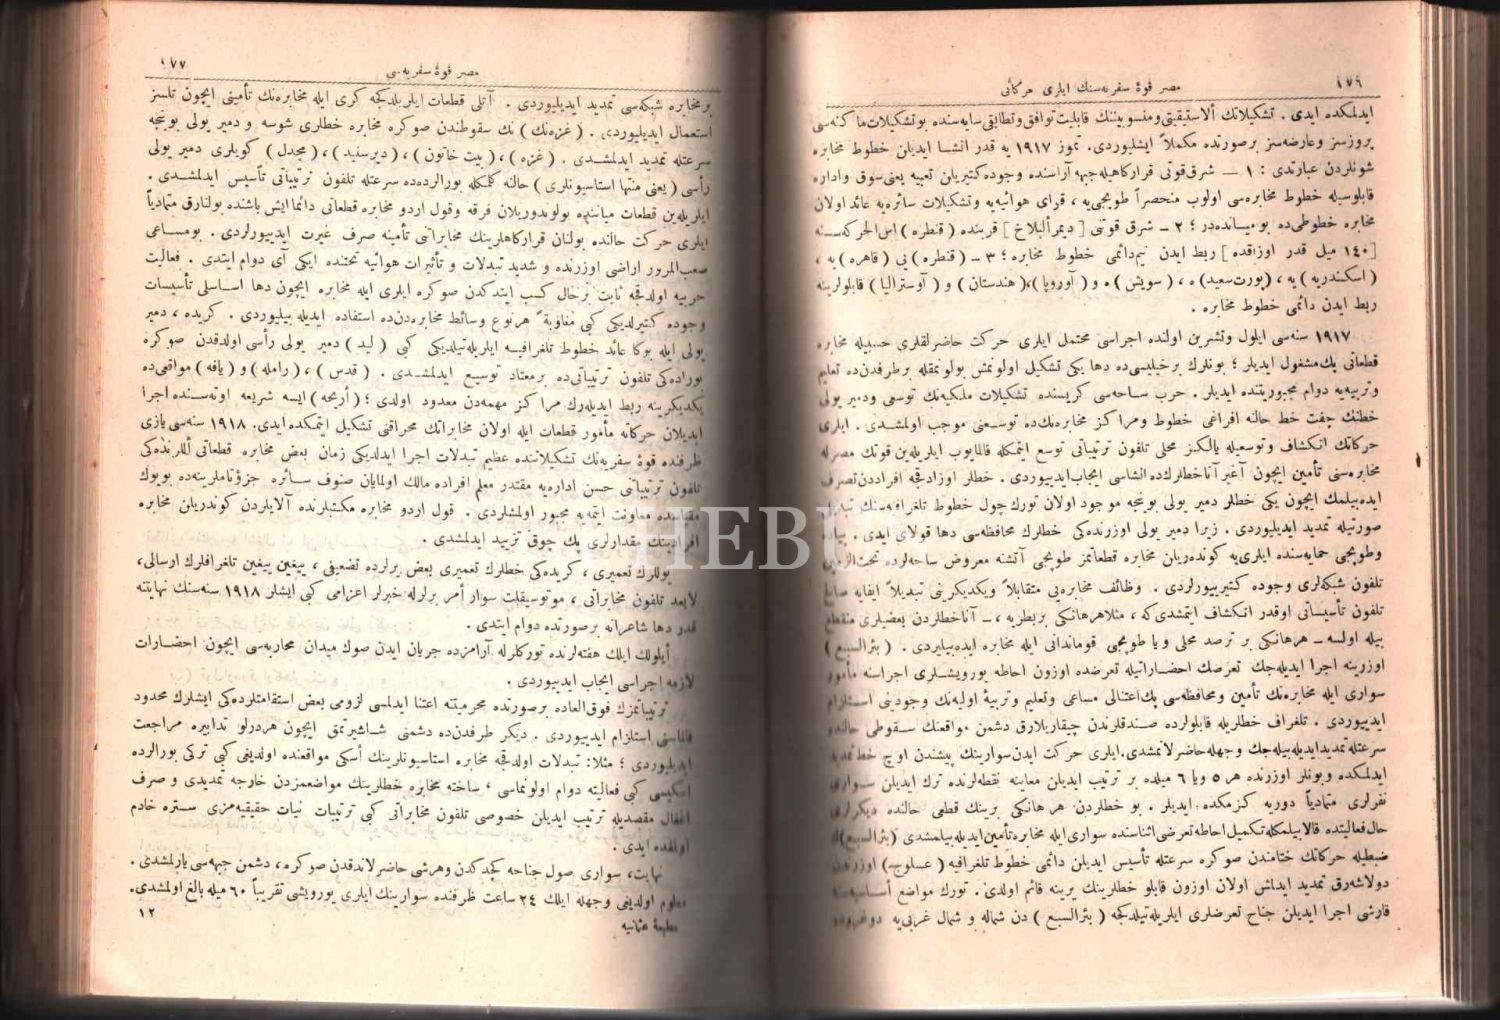 ١٧٦
مصر قوۀ سفریه‌سنك ایلری حركاتی
ایدلمكده ایدی . تشكیلاتك ألاستیقیتی ومنسوبیننك قابلیت توافق وتطابقی سایه‌سنده بوتشكیلات ماكنه‌سی
پروزسز وعارضه‌سز برصورتده مكملاً ایشلیوردی. تموز ۱۹۱۷ یه قدر انشا ایدیلن خطوط مخابره
شونلردن عبارتدی : ۱ — شرق قوتی قرارگاهیله جبهه آراسنده وجوده كتیریلن تعبیه یعنی سوق واداره
قابلوسیله خطوط مخابره‌سی اولوب منحصراً طوپجی‌یه ، قرای هوائیه‌یه وتشكیلات سائره‌یه عائد اولان
مخابره خطوطی‌ده بو میانده‌در ؛ ۲ — شرق قوتی [ دیرألبلاخ ] قربنده ( قنطره ) اس الحركه‌سنه
[ ١٤٠ میل قدر اوزاقده ] ربط ایدن نیم‌دائمی خطوط مخابره ؛ ۳ — ( قنطره ) یی ( قاهره ) یه ،
( اسكندریه ) یه ، ( پورت سعید ) ه ، ( سویش ) ه و ( آوروپا ) ، ( هندستان ) و ( آوسترالیا ) قابلولرینه
ربط ایدن دائمی خطوط مخابره .
۱۹۱۷ سنه‌سی ایلول وتشرین اولنده اجراسی محتمل ایلری حركت حاضرلقلری حسبیله مخابره
قطعاتی پك مشغول ایدیلر ؛ بونلرك برخیلیسی‌ده دها یكی تشكیل اولونمش بولونمقله برطرفدن‌ده تعلیم
وتربیه‌یه دوام مجبوریتنده ایدیلر . حرب ساحه‌سی كریسنده تشكیلات ملكیه‌نك توسعی ودمیر یولی
خطنك چفت خط حالنه افراغی خطوط ومراكز مخابره‌نك‌ده توسعنی موجب اولمشدی . ایلری
حركاتك انكشاف وتوسعیله یالكز محلی تلفون ترتیباتی توسع ایتمكله قالمایوب ایلریله‌ین قوتك مصرله
مخابره‌سنی تأمین ایچون آغیر آناخطلرك‌ده انشاسی ایجاب ایدییوردی . خطلر اوزادقجه افراددن تصرف
ایده‌بیلمك ایچون یكی خطلر دمیر یولی بوینجه موجود اولان تورك چول خطوط تلغرافیه‌سنك تبدیل
صورتیله تمدید ایدیلیوردی . زیرا دمیر یولی اوزرنده‌كی خطلرك محافظه‌سی دها قولای ایدی . پیاده
وطوپجی حمایه‌سنده ایلری‌یه كونده‌ریلن مخابره قطعاتمز طوپجی آتشنه معروض ساحه‌لرده تحت‌الزمین
تلفون شبكه‌لری وجوده كتیرییورلردی . وظائف مخابره‌یی متقابلاً ویكدیكرینی تبدیلاً ایفایه صالح
تلفون تأسیساتی اوقدر انكشاف ایتمشدی‌كه ، مثلا هرهانكی بربطریه ، — آناخطلردن بعضیلری منقطع
بیله اولسه — هرهانكی بر ترصد محلی ویا طوپجی قوماندانی ایله مخابره ایده‌بیلیردی . ( بئرالسبع )
اوزرینه اجرا ایدیله‌جك تعرضك احضاراتیله تعرضده اوزون احاطه یورویشلری اجراسنه مأمور
سواری ایله مخابره‌نك تأمین ومحافظه‌سی پك اعتنالی مساعی وتعلیم وتربیۀ اولیه‌نك وجودینی استلزام
ایدییوردی . تلغراف خطلریله قابلولرده صندقلرندن چیقاریلارق دشمن مواقعنك سقوطی حالنده
سرعتله تمدید ایدیله‌بیله‌جك وجهله حاضرلانمشدی. ایلری حركت ایدن سوارینك پیشندن اوچ خط تمدید
ایدلمكده وبونلر اوزرنده هر ٥ ویا ٦ میلده بر ترتیب ایدیلن معاینه نقطه‌لرنده ترك ایدیلن سواری
نفرلری متمادیاً دوریه كزمكده ایدیلر . بو خطلردن هر هانكی برینك قطعی حالنده دیكرلری
حال فعالیتده قالابیلمكله تكمیل احاطه تعرضی اثناسنده سواری ایله مخابره تأمین ایدیله‌بیلمشدی ( بئرالسبع )ك
ضبطیله حركاتك ختامندن صوكره سرعتله تأسیس ایدیلن دائمی خطوط تلغرافیه ( عسلوج ) اوزرندن
دولاشه‌رق تمدید ایدلمش اولان اوزون قابلو خطلرینك یرینه قائم اولدی . تورك مواضع اساسیه‌سنه
قارشی اجرا ایدیلن جناح تعرضلری ایلریله‌تیلدكجه ( بئرالسبع ) دن شماله و شمال غربی‌یه دوغرو
١٧٧
مصر قوۀ سفریه‌سی
بر مخابره شبكه‌سی تمدید ایدیلیوردی . آتلی قطعات ایلریلدكجه كری ایله مخابره‌نك تأمینی ایچون تلسز
استعمال ایدیلیوردی . ( غزه‌نك ) نك سقوطندن صوكره مخابره خطلری شوسه و دمیر یولی بوینجه
سرعتله تمدید ایدلمشدی . ( غزه ) ، ( بیت خاتون ) ، ( دیرسنید ) ، ( مجدل ) كویلری دمیر یولی
رأسی ( یعنی منتها استاسیونلری ) حالنه كلمكله بورالرده‌ده سرعتله تلفون ترتیباتی تأسیس ایدلمشدی .
ایلریله‌ین قطعات میاننده بولوندوریلان فرقه وقول اردو مخابره قطعاتی دائما ایش باشنده بولنارق متمادیاً
ایلری حركت حالنده بولنان قرارگاهلرینك مخابراتنی تأمینه صرف غیرت ایدییورلردی . بومساعی
صعب‌المرور اراضی اوزرنده و شدید تبدلات و تأثیرات هوائیه تحتنده ایكی آی دوام ایتدی . فعالیت
حربیه اولدقجه ثابت برحال كسب ایتدكدن صوكره ایلری ایله مخابره ایچون دها اساسلی تأسیسات
وجوده كتیرلدیكی كبی مناوبةً هرنوع وسائط مخابره‌دن‌ده استفاده ایدیله بیلیوردی . كریده ، دمیر
یولی ایله بوكا عائد خطوط تلغرافیه ایلریله‌تیلدیكی كبی ( لید ) دمیر یولی رأسی اولدقدن صوكره
بوراده‌كی تلفون ترتیباتی‌ده برمعتاد توسیع ایدلمشدی . ( قدس ) ، ( رامله ) و ( یافه ) مواقعی‌ده
یكدیكرینه ربط ایدیله‌رك مراكز مهمه‌دن معدود اولدی ؛ ( أریحه ) ایسه شریعه اوته‌سنده اجرا
ایدیلان حركاته مأمور قطعات ایله اولان مخابراتك محراقنی تشكیل ایتمكده ایدی. ۱۹۱۸ سنه‌سی یازی
ظرفنده قوۀ سفریه‌نك تشكیلاتنده عظیم تبدلات اجرا ایدلدیكی زمان بعض مخابره قطعاتی أللرنده‌كی
تلفون ترتیباتنی حسن اداره‌یه مقتدر معلم افراده مالك اولمایان صنوف سائره جزؤتاملرینه‌ده بویوك
مقیاسده معاونت ایتمه‌یه مجبور اولمشلردی . قول اردو مخابره مكتبلرنده آلایلردن كوندریلن مخابره
افرادینك مقدارلری پك چوق تزیید ایدلمشدی .
یوللرك تعمیری ، كریده‌كی خطلرك تعمیری بعض یرلرده تضعیفی ، ییغین ییغین تلغرافلرك ارسالی،
لایعد تلفون مخابراتی ، موتوسیقلت سوار أمر برلرله خبرلر اعزامی كبی ایشلر ۱۹۱۸ سنه‌سنك نهایتنه
قدر دها شاعرانه برصورتده دوام ایتدی .
أیلولك ایلك هفته‌لرنده توركلرله آرامزده جریان ایدن صوك میدان محاربه‌سی ایچون احضارات
لازمه اجراسی ایجاب ایدییوردی .
ترتیباتمزك فوق‌العاده برصورتده محرمیتنه اعتنا ایدلمسی لزومی بعض استقامتلرده‌كی ایشلرك محدود
قالماسنی استلزام ایدییوردی . دیكر طرفدن‌ده دشمنی شاشیرتمق ایچون هردرلو تدابیره مراجعت
ایدیلیوردی ؛ مثلا: تبدلات اولدقجه مخابره استاسیونلرینك أسكی مواقعنده اولدیغی كبی تركی بورالرده
اسكیسی كبی فعالیته دوام اولونماسی ، ساخته مخابره خطلرینك مواضعمزدن خارجه تمدیدی و صرف
اغفال مقصدیله ترتیب ایدیلن خصوصی تلفون مخابراتی كبی ترتیبات نیات حقیقیه‌مزی ستره خادم
اولمقده ایدی .
نهایت، سواری صول جناحه كچدكدن وهرشی حاضرلاندقدن صوكره ، دشمن جبهه‌سی یارلمشدی .
معلوم اولدیغی وجهله ایلك ٢٤ ساعت ظرفنده سوارینك ایلری یورویشی تقریباً ٦٠ میله بالغ اولمشدی.
مطبعۀ عثمانیه
١٢
HEBU